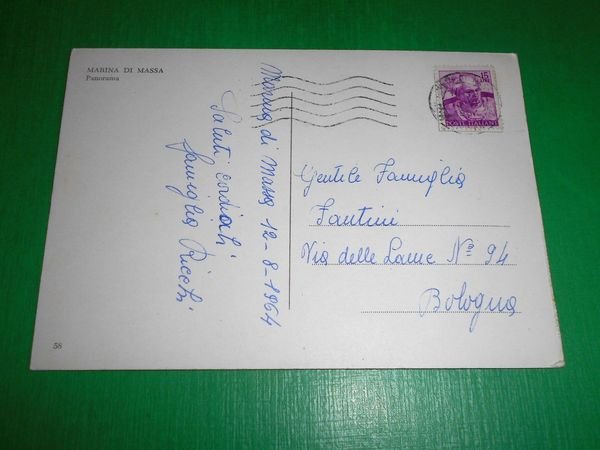 MARINA DI MASSA
Panorama
Marina di Massa 12-8-1964
Saluti cordiali
famiglia Ricchi
15
POSTE ITALIANE
Gentile Famiglia
Fantini
Via delle Lame Nº 94
Bologna
58